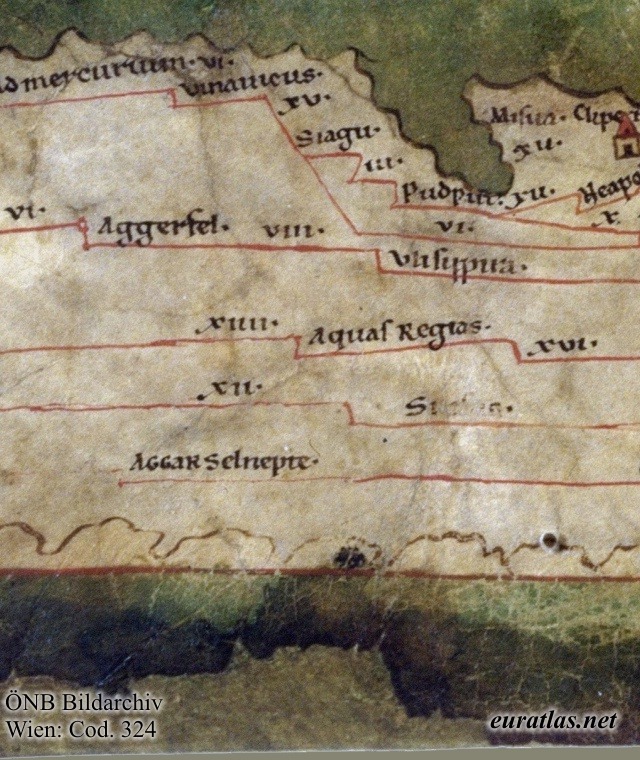 ad mercurium · vi ·
vinavicus ·
xv ·
Siagu ·
iii ·
Pudput · xii ·
Misua · Clipe
xii ·
x ·
vi ·
vi ·
Aggerfel · viii ·
Ulisippira ·
xiiii ·
Aquas Regias ·
xvi ·
xii ·
AGGAR selnepte ·
ÖNB Bildarchiv
Wien: Cod. 324
euratlas.net